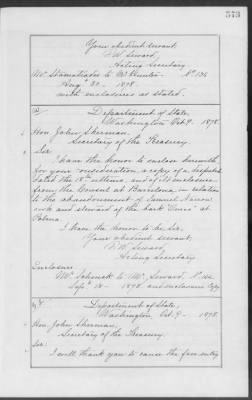 573
Your obedient servant,
F. W. Seward,
Acting Secretary
to Mr Hunter. No 135
Aug. 30 - 1878.
with enclosures as stated.
Department of State,
Washington Oct. 9. 1878.
Hon. John Sherman,
Secretary of the Treasury.
Sir:
I have the honor to enclose herewith
for your consideration, a copy of a despatch
dated the 18th ultimo, and of its enclosure,
from the Consul at Barcelona, in relation
to the abandonment of Samuel
cook and steward of the bark at
Palma.
I have the honor to be, Sir,
Your obedient servant,
F. W. Seward,
Acting Secretary.
Enclosure.
Mr. to Mr. Seward. No
Sept. 18 - 1878. and enclosure Copy
Department of State,
Washington, Oct. 9 - 1878.
Hon. John Sherman,
Secretary of the Treasury.
Sir:
I will thank you to cause the free entry